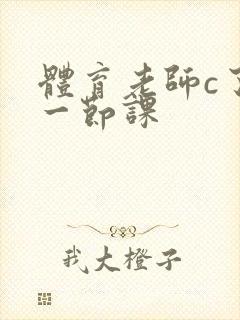 體育老師c了
一節課
我大橙子